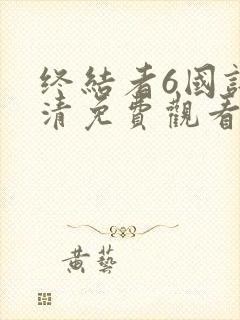 终結者6國
清免費觀看
黄藝